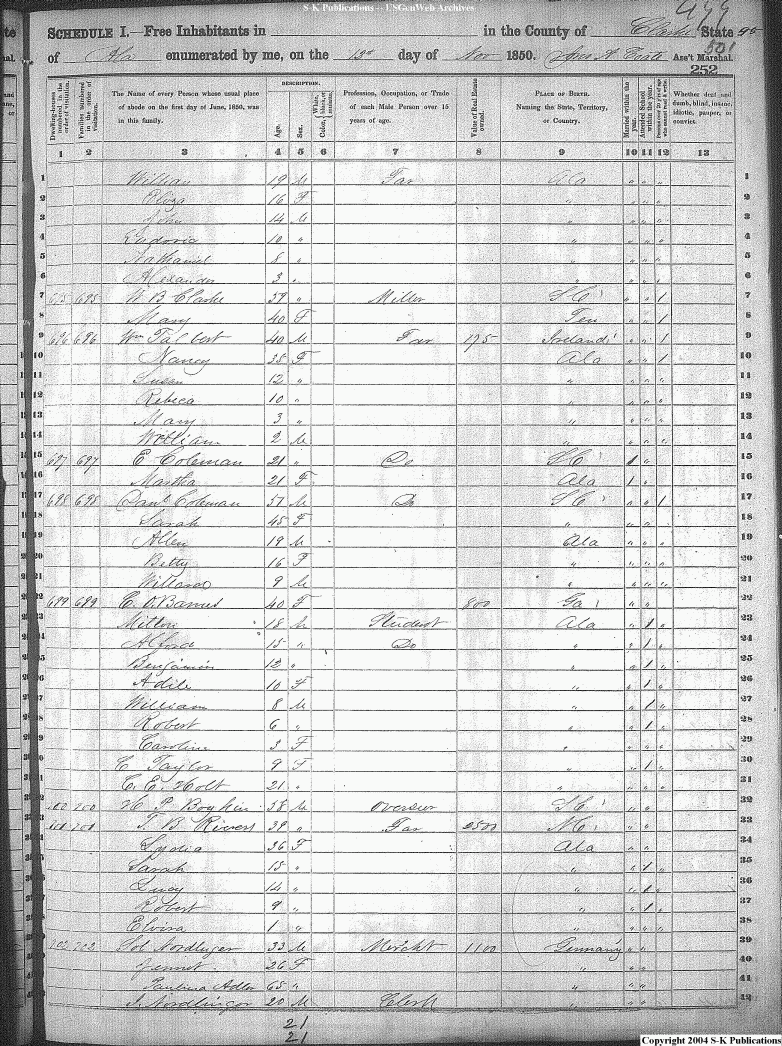 S-K Publications -- USGenWeb Archives
499
SCHEDULE I.—Free Inhabitants in in the County of Clarke State 95
501
of Ala enumerated by me, on the 13th day of Nov 1850. Ass't Marshal.
252
DESCRIPTION.
Dwelling-houses numbered in the order of visitation.
Families numbered in the order of visitation.
The Name of every Person whose usual place of abode on the first day of June, 1850, was in this family.
Age.
Sex.
Color, White, black, or mulatto.
Profession, Occupation, or Trade of each Male Person over 15 years of age.
Value of Real Estate owned.
PLACE OF BIRTH. Naming the State, Territory, or Country.
Married within the year.
Attended School within the year.
Whether deaf and dumb, blind, insane, idiotic, pauper, or convict.
1 2 3 4 5 6 7 8 9 10 11 12 13
1 William 19 M Far Ala " " " 1
2 Eliza 16 F " " " " 2
3 John 14 M " " " " 3
4 10 " " " " " 4
5 Nathaniel 8 " " " " " 5
6 Alexander 3 " " " " " 6
7 695 W B Clarke 39 " Miller S C " " 1 7
8 Mary 40 F Ten " " 1 8
9 696 696 Wm Talbert 40 M Far 175 Ireland " " 1 9
10 Nancy 35 F Ala " " 1 10
11 Susan 12 " " " " " 11
12 Rebeca 10 " " " " " 12
13 Mary 3 " " " " " 13
14 William 2 M " " " " 14
15 697 697 E Coleman 21 " Do S C 1 " 15
16 Martha 21 F Ala 1 " 16
17 698 698 Danl Coleman 57 M Do S C " " 1 17
18 Sarah 45 F " " " " 18
19 Allen 19 M Ala " " " 19
20 Betty 16 F " " " " 20
21 Willard 9 M " " " " 21
22 699 699 E. Barnes 40 F 800 Ga " " 22
23 Milton 18 M Student Ala " 1 " 23
24 Alford 15 " Do " " 1 " 24
25 Benjamin 12 " " " 1 " 25
26 Adile 10 F " " 1 " 26
27 William 8 M " " 1 " 27
28 Robert 6 " " " 1 " 28
29 Caroline 3 F " " " " 29
30 C Taylor 9 F " " 1 " 30
31 C. E. Holt 21 " " " " " 31
32 700 H. P. Boykin 38 M Overseer S C " " 32
33 701 T. B. Rivers 39 " Far 2500 N C " " 33
34 Lydia 36 F Ala " " 34
35 Sarah 15 " " " 1 " 35
36 Lucy 14 " " " 1 " 36
37 Robert 9 " " " 1 " 37
38 Elvira 1 " " " " 38
39 702 702 Sol Nordlinger 33 M Merchkt 1100 Germany " " 39
40 Jannet 26 F " " " 40
41 Paulina Adler 65 " " " " 41
42 J. Nordlinger 20 M Clerk " " " 42
21
21
Copyright 2004 S-K Publications